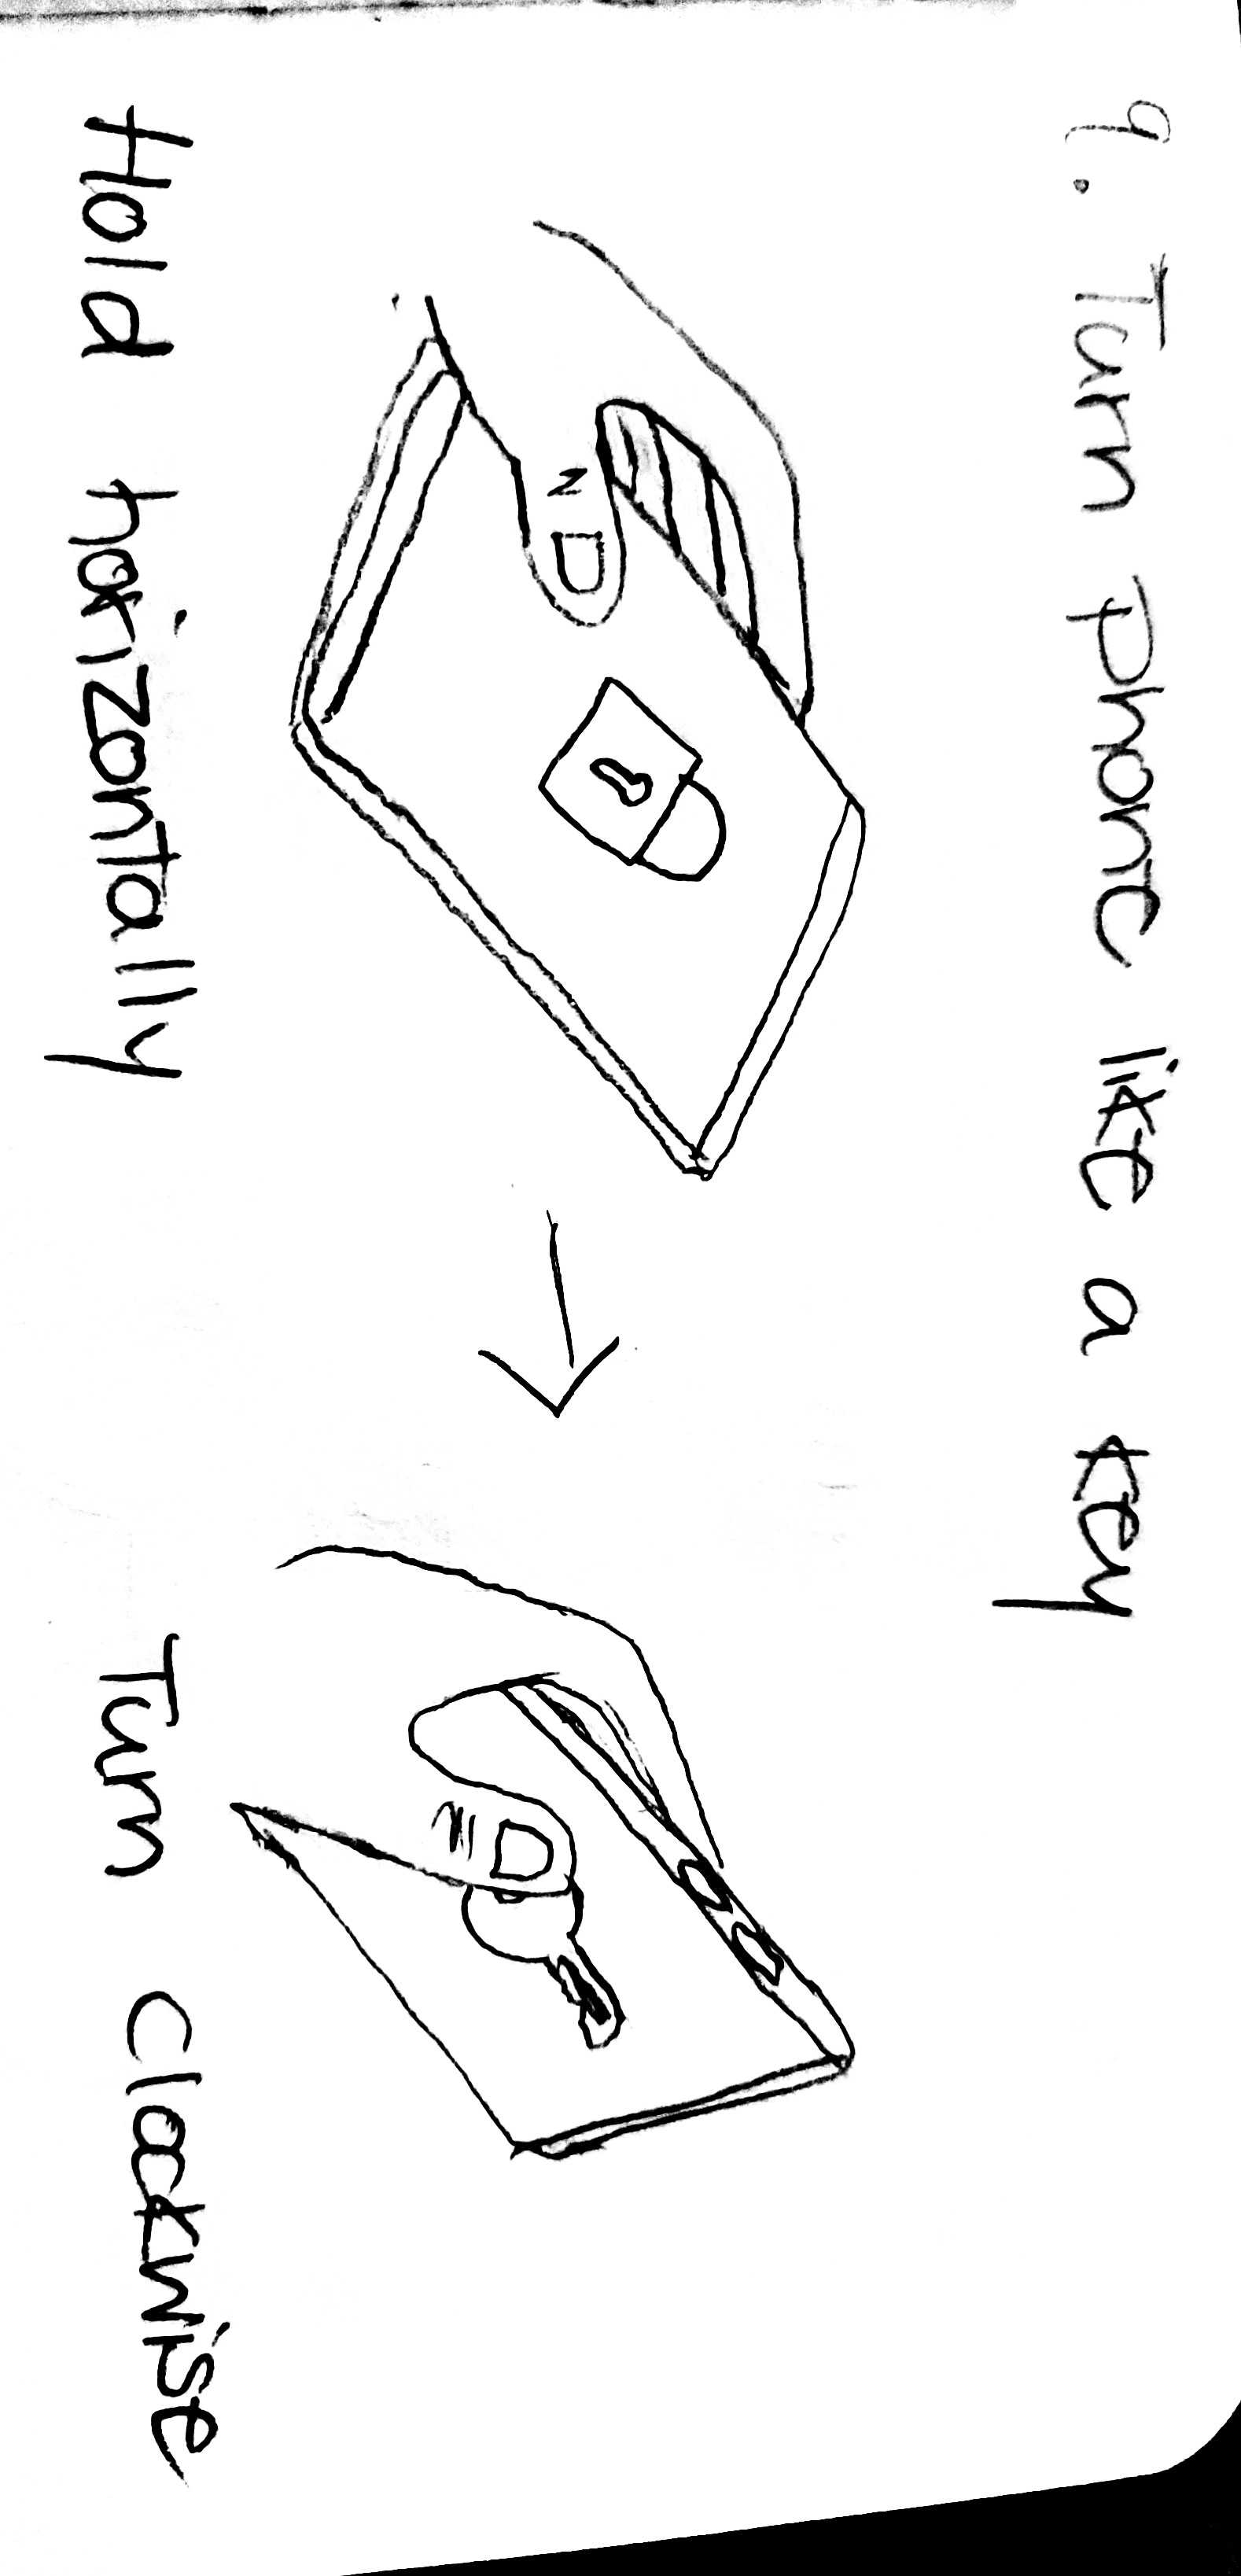 9. Turn phone like a key
Hold horizontally
Turn clockwise